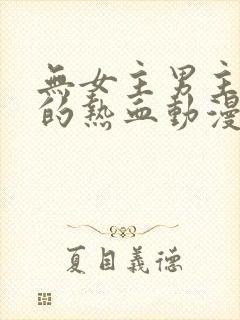 無女主男主
的熱血動漫
夏目義德